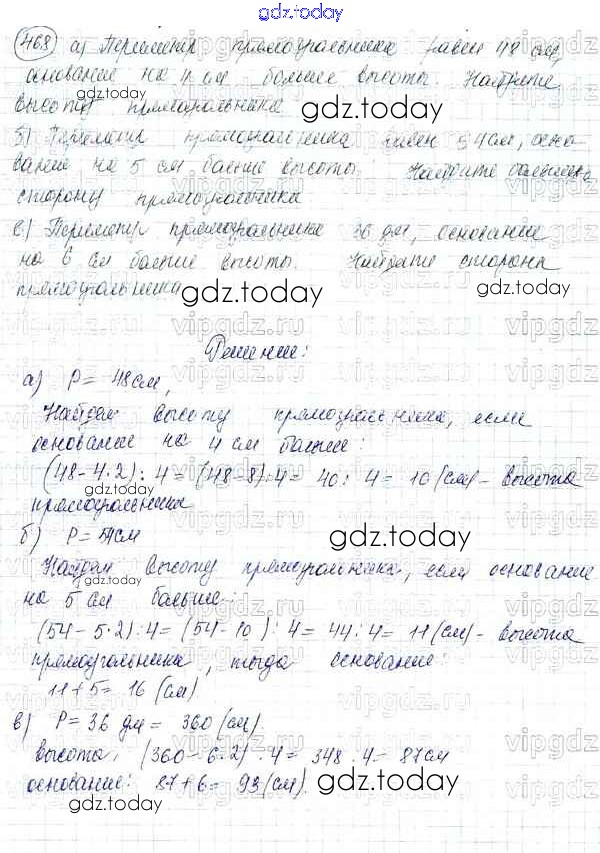 gdz.today
468 а) Периметр прямоугольника равен 48 см,
основание на 4 см больше высоты. Найдите
высоту прямоугольника
gdz.today
б) Периметр прямоугольника равен 54 см, осно-
вание на 5 см больше высоты. Найдите большую
сторону прямоугольника
gdz.today
в) Периметр прямоугольника 36 дм, основание
на 6 см больше высоты. Найдите стороны
прямоугольника
gdz.today
Решение:
а) P = 48 см,
Найдем высоту прямоугольника, если
основание на 4 см больше:
(48 - 4·2) : 4 = (48 - 8) : 4 = 40 : 4 = 10 (см) - высота
прямоугольника
gdz.today
б) P = 54 см
gdz.today
Найдем высоту прямоугольника, если основание
gdz.today
на 5 см больше:
(54 - 5·2) : 4 = (54 - 10) : 4 = 44 : 4 = 11 (см) - высота
прямоугольника, тогда основание:
11 + 5 = 16 (см)
gdz.today
в) P = 36 дм = 360 (см)
высота: (360 - 6·2) : 4 = 348 : 4 = 87 см
основание: 87 + 6 = 93 (см).
gdz.today
gdz.today